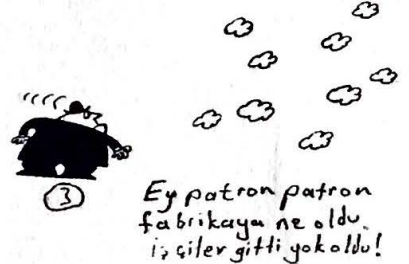 3
Ey patron patron
fabrikaya ne oldu.
işçiler gitti yok oldu!